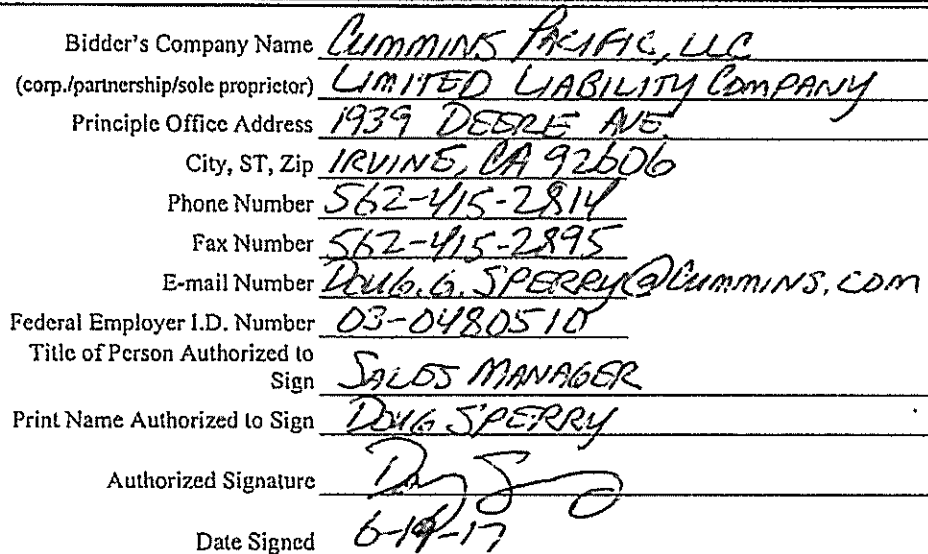 Bidder's Company Name CUMMINS PACIFIC, LLC
(corp./partnership/sole proprietor) LIMITED LIABILITY COMPANY
Principle Office Address 1939 DEERE AVE.
City, ST, Zip IRVINE, CA 92606
Phone Number 562-415-2814
Fax Number 562-415-2895
E-mail Number DOUG.G.SPERRY@CUMMINS.COM
Federal Employer I.D. Number 03-0480510
Title of Person Authorized to
Sign SALES MANAGER
Print Name Authorized to Sign DOUG SPERRY
Authorized Signature
Date Signed